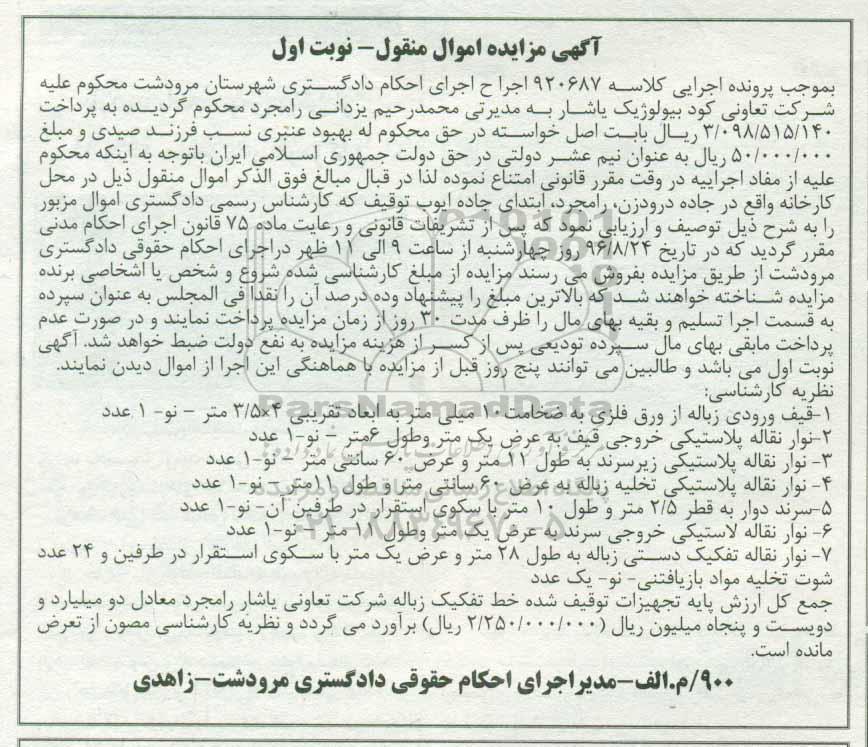 آگهی مزایده اموال منقول– نوبت اول
بموجب پرونده اجرایی کلاسه ۹۲۰۶۸۷ اجرا ح اجرای احکام دادگستری شهرستان مرودشت محکوم علیه
شرکت تعاونی کود بیولوژیک یاشار به مدیرتی محمدرحیم یزدانی رامجرد محکوم گردیده به پرداخت
۳/۰۹۸/۵۱۵/۱۴۰ ریال بابت اصل خواسته در حق محکوم له بهبود عنبری نسب فرزند صیدی و مبلغ
۵۰/۰۰۰/۰۰۰ ریال به عنوان نیم عشر دولتی در حق دولت جمهوری اسلامی ایران باتوجه به اینکه محکوم
علیه از مفاد اجراییه در وقت مقرر قانونی امتناع نموده لذا در قبال مبالغ فوق الذکر اموال منقول ذیل در محل
کارخانه واقع در جاده درودزن، رامجرد، ابتدای جاده ایوب توقیف که کارشناس رسمی دادگستری اموال مزبور
را به شرح ذیل توصیف و ارزیابی نمود که پس از تشریفات قانونی و رعایت ماده ۷۵ قانون اجرای احکام مدنی
مقرر گردید که در تاریخ ۹۶/۸/۲۴ روز چهارشنبه از ساعت ۹ الی ۱۱ ظهر دراجرای احکام حقوقی دادگستری
مرودشت از طریق مزایده بفروش می رسند مزایده از مبلغ کارشناسی شده شروع و شخص یا اشخاصی برنده
مزایده شناخته خواهند شد که بالاترین مبلغ را پیشنهاد وده درصد آن را نقدا فی المجلس به عنوان سپرده
به قسمت اجرا تسلیم و بقیه بهای مال را ظرف مدت ۳۰ روز از زمان مزایده پرداخت نمایند و در صورت عدم
پرداخت مابقی بهای مال سپرده تودیعی پس از کسر از هزینه مزایده به نفع دولت ضبط خواهد شد. آگهی
نوبت اول می باشد و طالبین می توانند پنج روز قبل از مزایده با هماهنگی این اجرا از اموال دیدن نمایند.
نظریه کارشناسی:
۱-قیف ورودی زباله از ورق فلزی به ضخامت۱۰ میلی متر به ابعاد تقریبی ۴×۳/۵ متر – نو- ۱ عدد
۲-نوار نقاله پلاستیکی خروجی قیف به عرض یک متر وطول ۶متر – نو-۱ عدد
۳- نوار نقاله پلاستیکی زیرسرند به طول ۱۱ متر و عرض ۶۰ سانتی متر – نو-۱ عدد
۴- نوار نقاله پلاستیکی تخلیه زباله به عرض ۶۰ سانتی متر و طول ۱۱متر – نو-۱ عدد
۵-سرند دوار به قطر ۲/۵ متر و طول ۱۰ متر با سکوی استقرار در طرفین آن- نو-۱ عدد
۶- نوار نقاله لاستیکی خروجی سرند به عرض یک متر وطول ۱۱ متر – نو-۱ عدد
۷- نوار نقاله تفکیک دستی زباله به طول ۲۸ متر و عرض یک متر با سکوی استقرار در طرفین و ۲۴ عدد
شوت تخلیه مواد بازیافتنی- نو- یک عدد
جمع کل ارزش پایه تجهیزات توقیف شده خط تفکیک زباله شرکت تعاونی یاشار رامجرد معادل دو میلیارد و
دویست و پنجاه میلیون ریال (۲/۲۵۰/۰۰۰/۰۰۰ ریال) برآورد می گردد و نظریه کارشناسی مصون از تعرض
مانده است.
۹۰۰/م.الف-مدیراجرای احکام حقوقی دادگستری مرودشت-زاهدی
ParsNamadData
پایگاه اطلاع رسانی مناقصه و مزایده
۰۲۱-۸۸۳۴۹۶۷۰-۵